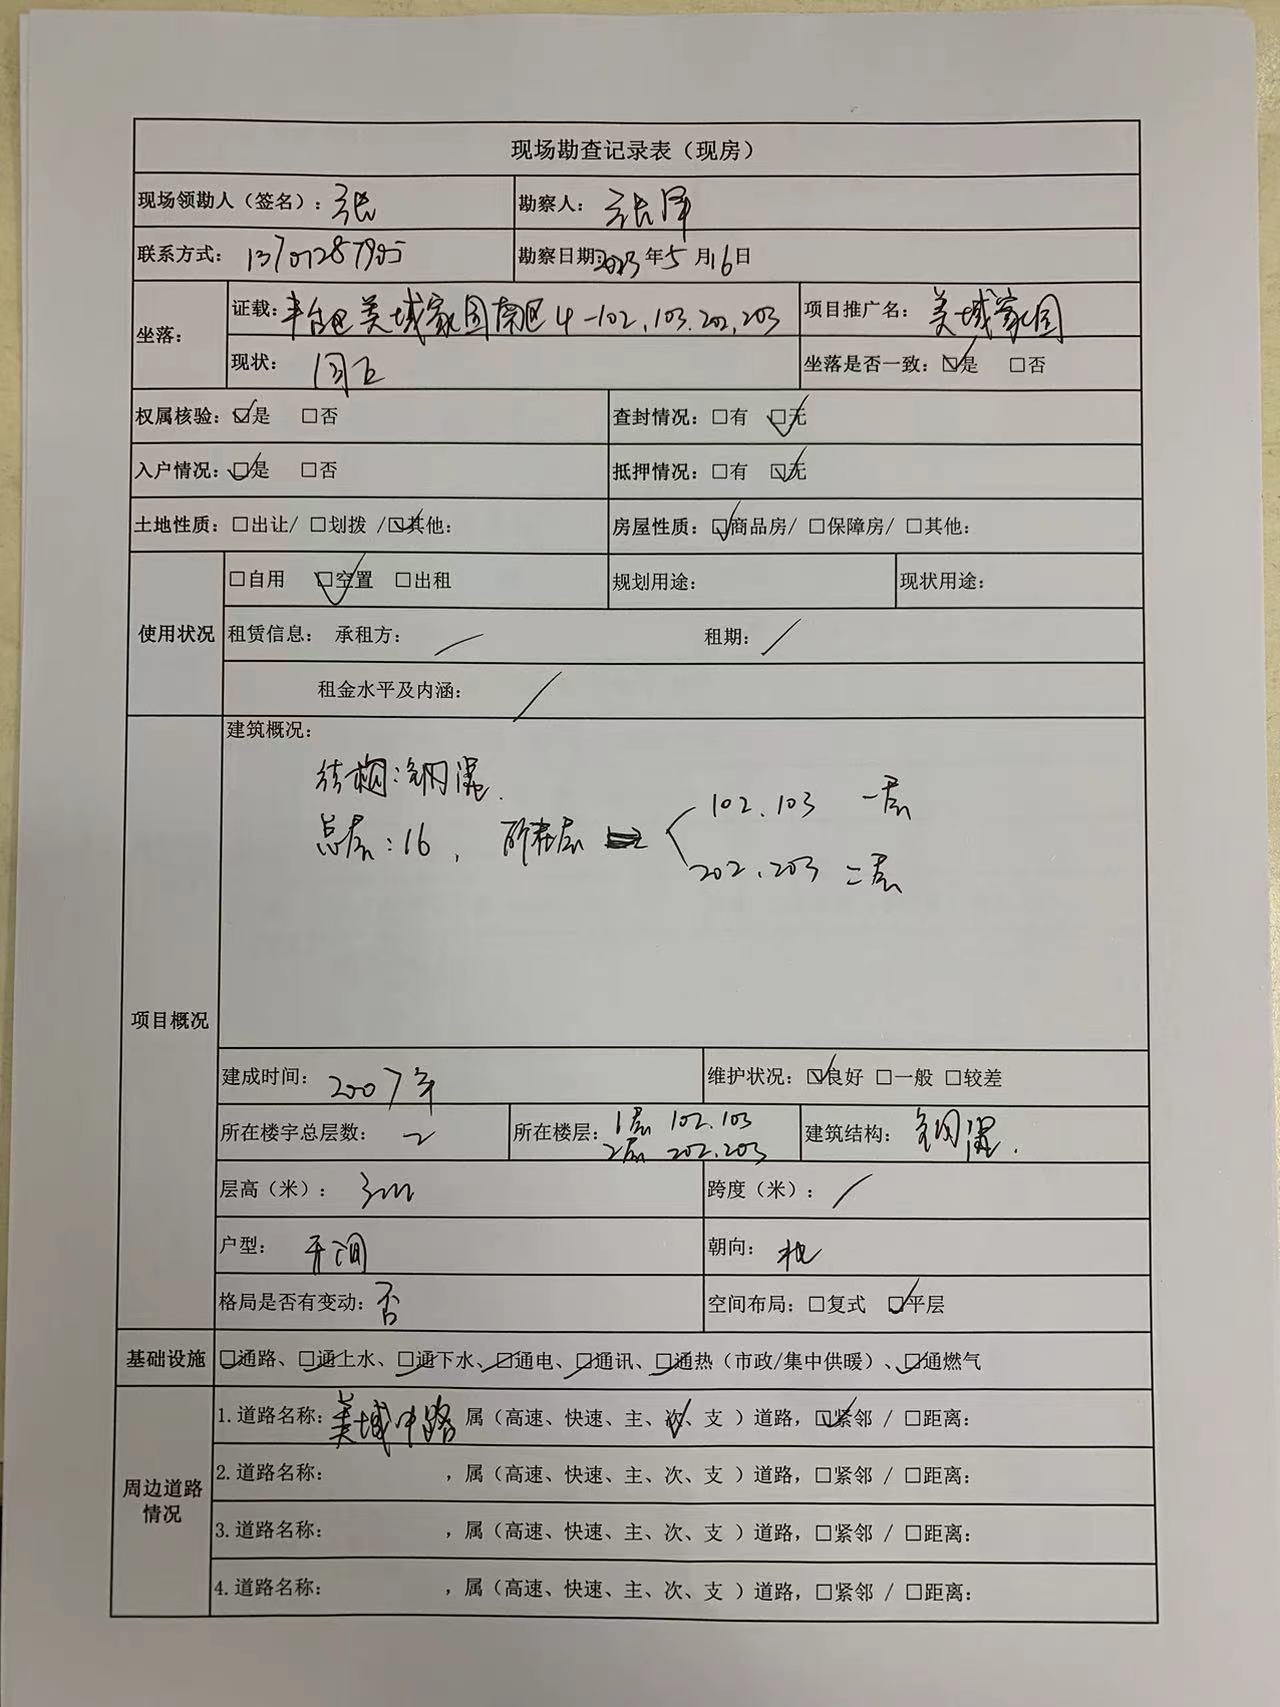 现场勘查记录表（现房）
现场领勘人（签名）：张 勘察人：张泽
联系方式： 勘察日期：2023年5月16日
坐落：
证载：丰台区美域家园南区4-102.103.202.203 项目推广名：美域家园
现状：同上 坐落是否一致：☑是 □否
权属核验：☑是 □否 查封情况：□有 ☑无
入户情况：☑是 □否 抵押情况：□有 ☑无
土地性质：□出让/ □划拨 /☑其他： 房屋性质：☑商品房/ □保障房/ □其他：
使用状况
□自用 ☑空置 □出租 规划用途： 现状用途：
租赁信息： 承租方：/ 租期：/
租金水平及内涵：/
项目概况
建筑概况：
结构：钢混.
总层：16， 所在层 102.103 一层
202.203 二层
建成时间：2007年 维护状况：☑良好 □一般 □较差
所在楼宇总层数：2 所在楼层：1层 102.103 建筑结构：钢混.
2层 202.203
层高（米）：3m 跨度（米）：/
户型：开间 朝向：北
格局是否有变动：否 空间布局：□复式 ☑平层
基础设施 ☑通路、☑通上水、☑通下水、☑通电、☑通讯、☑通热（市政/集中供暖）、☑通燃气
周边道路情况
1.道路名称：美域中路 属（高速、快速、主、次✓、支 ）道路，☑紧邻 / □距离：
2.道路名称： ，属（高速、快速、主、次、支 ）道路，□紧邻 / □距离：
3.道路名称： ，属（高速、快速、主、次、支 ）道路，□紧邻 / □距离：
4.道路名称： ，属（高速、快速、主、次、支 ）道路，□紧邻 / □距离：